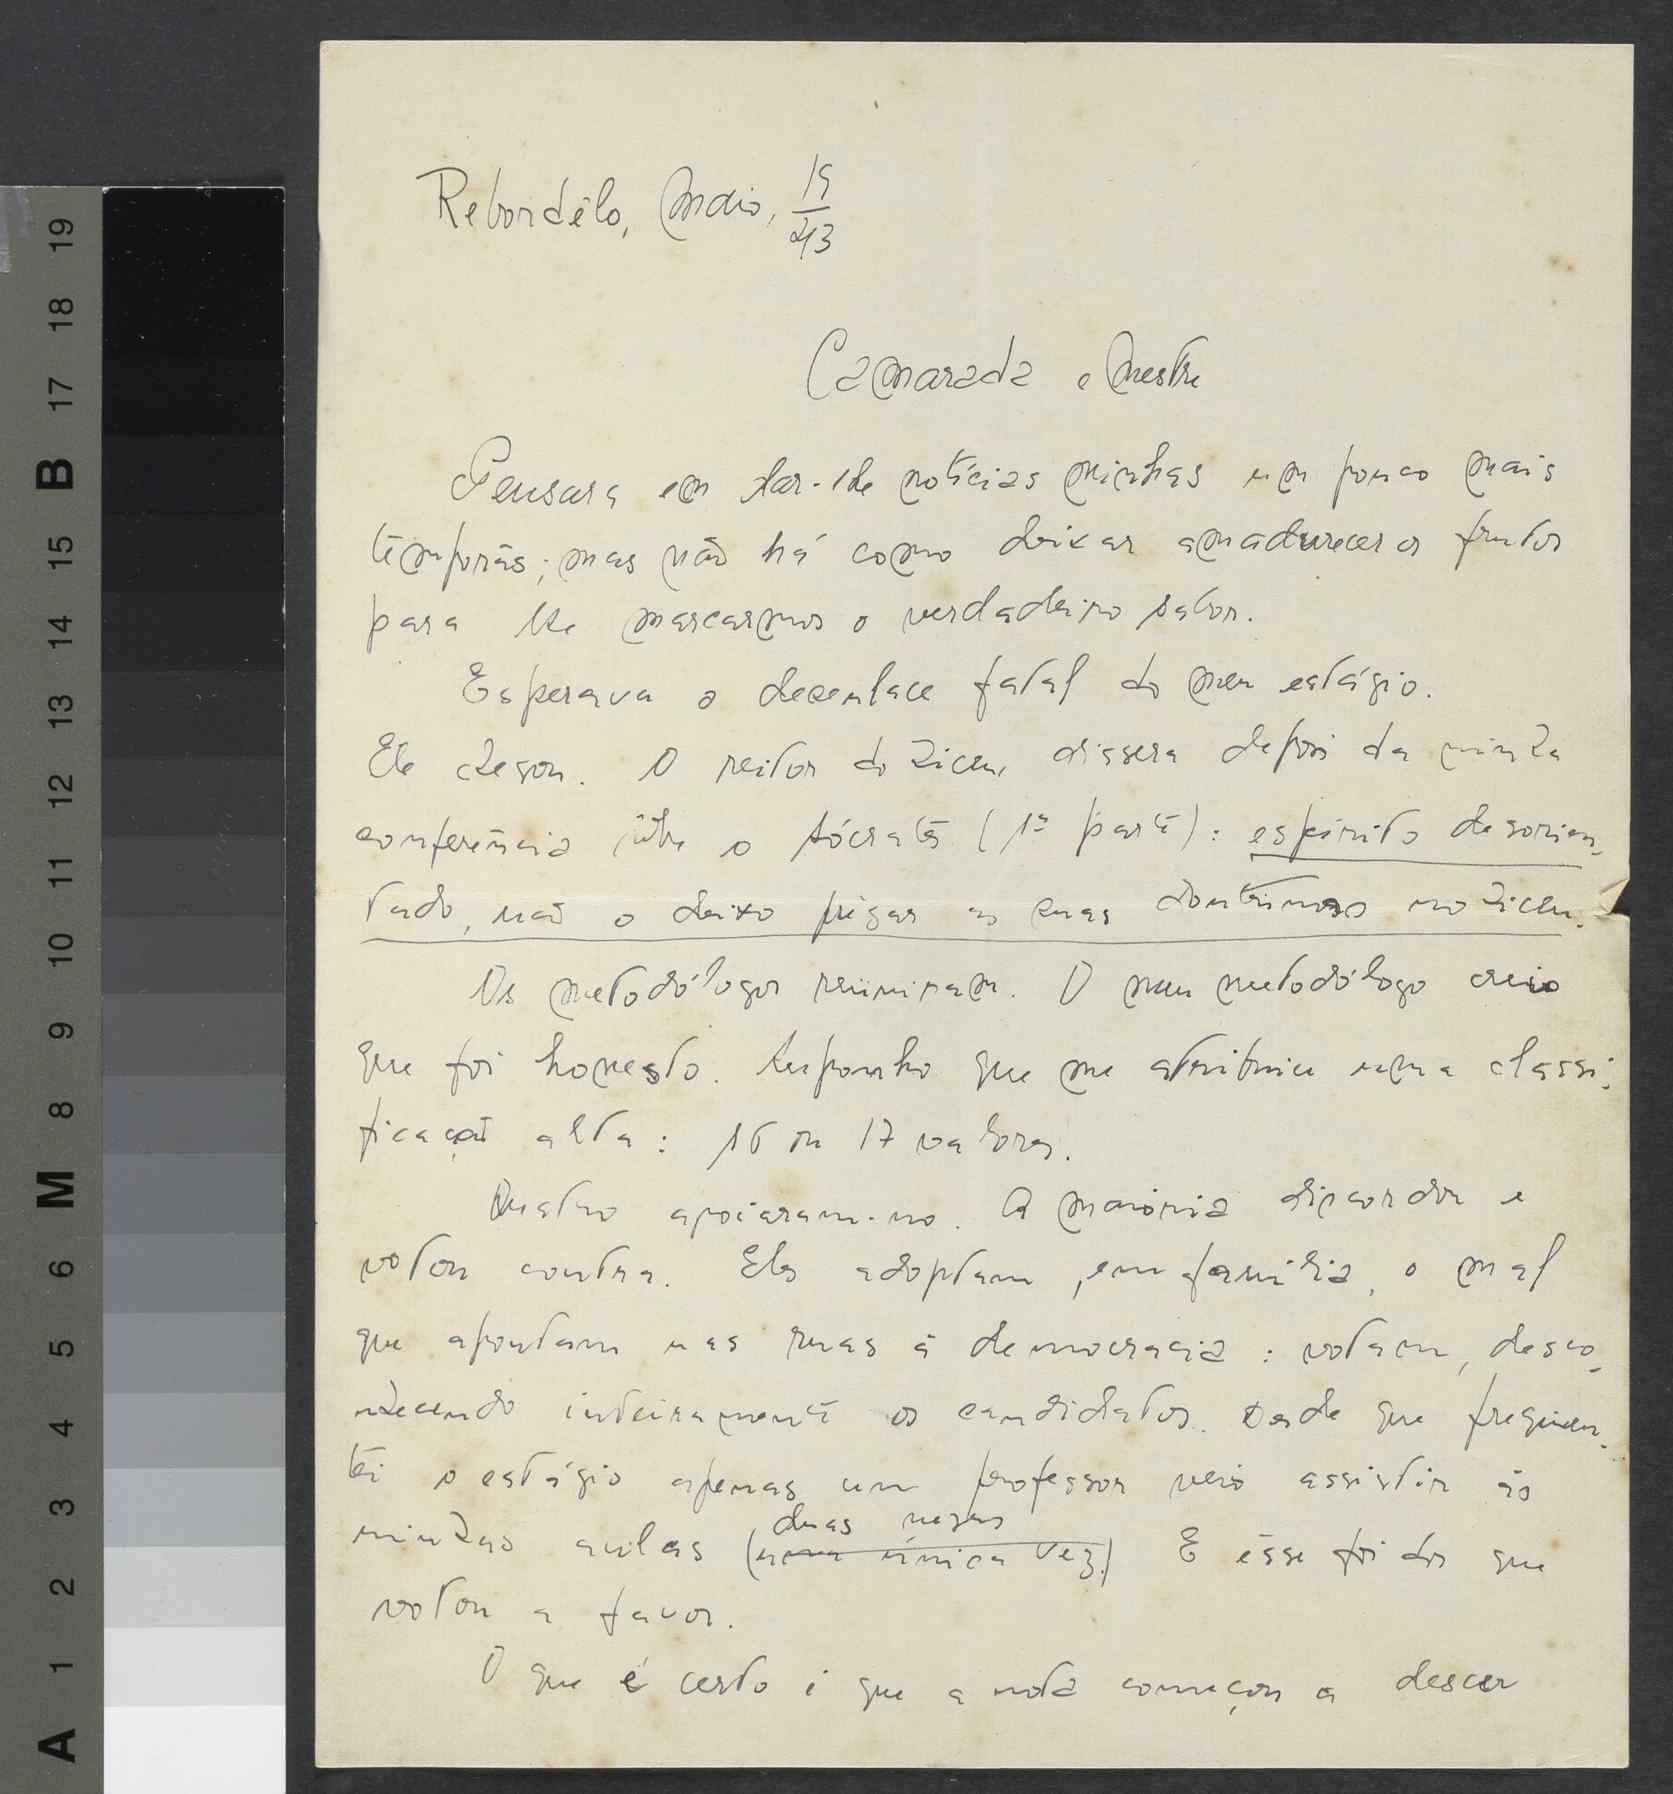 Rebordêlo, Maio, 19/43
Camarada e Mestre
Pensara em dar-lhe notícias minhas um pouco mais
têmporãs; mas não há como deixar amadurecer os frutos
para lhe marcarmos o verdadeiro sabor.
Esperava o decenlace fatal do meu estágio.
Êle chegou. O reitor do Liceu, dissera depois da minha
conferência sôbre o Sócrates (1ª parte): espírito desorien-
tado, não o deixo prègar as suas doutrinas no Liceu.
Os metodólogos reüniram. O meu metodólogo creio
que foi honesto. Suponho que me atribuiu uma classi-
ficação alta: 16 ou 17 valores.
Quatro apoiaram-no. A maioria discordou e
votou contra. Eles adoptam, em família, o mal
que apontam nas ruas à democracia: votam, desco-
nhecendo inteiramente os candidatos. Desde que freqüen-
tei o estágio apenas um professor veio assistir às
duas vezes
minhas aulas (uma única vez.) E êsse foi dos que
votou a favor.
O que é certo é que a nota começou a descer
A 1 2 3 4 5 6 M 8 9 10 11 12 13 14 15 B 17 18 19